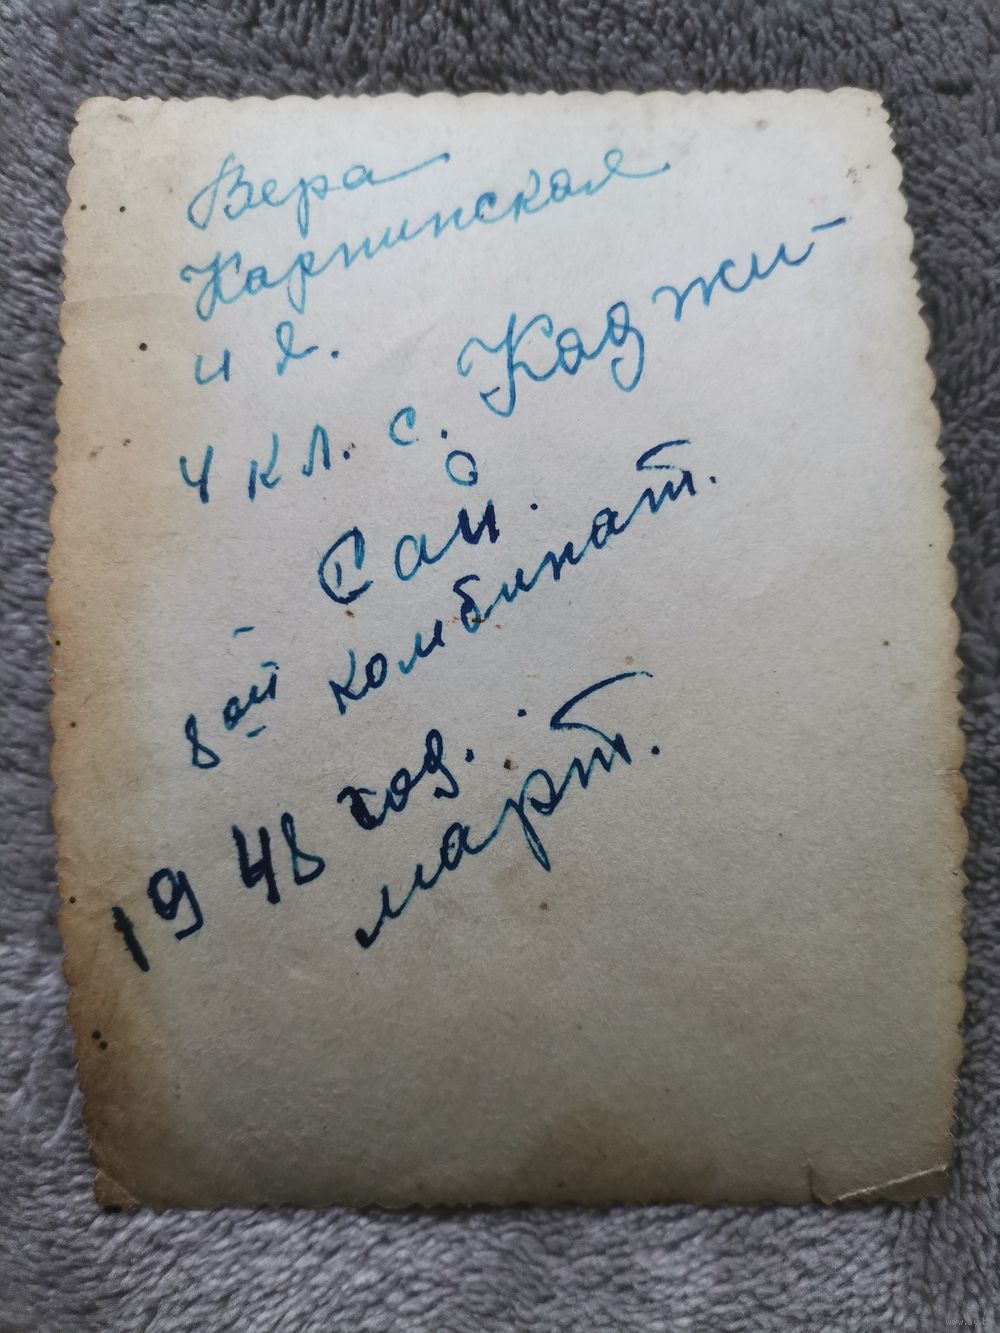 Вера
Карпинская
и я.
4 кл. с. Коджи-
Сай.
8ой комбинат.
1948 год.
март.
www.ay.b